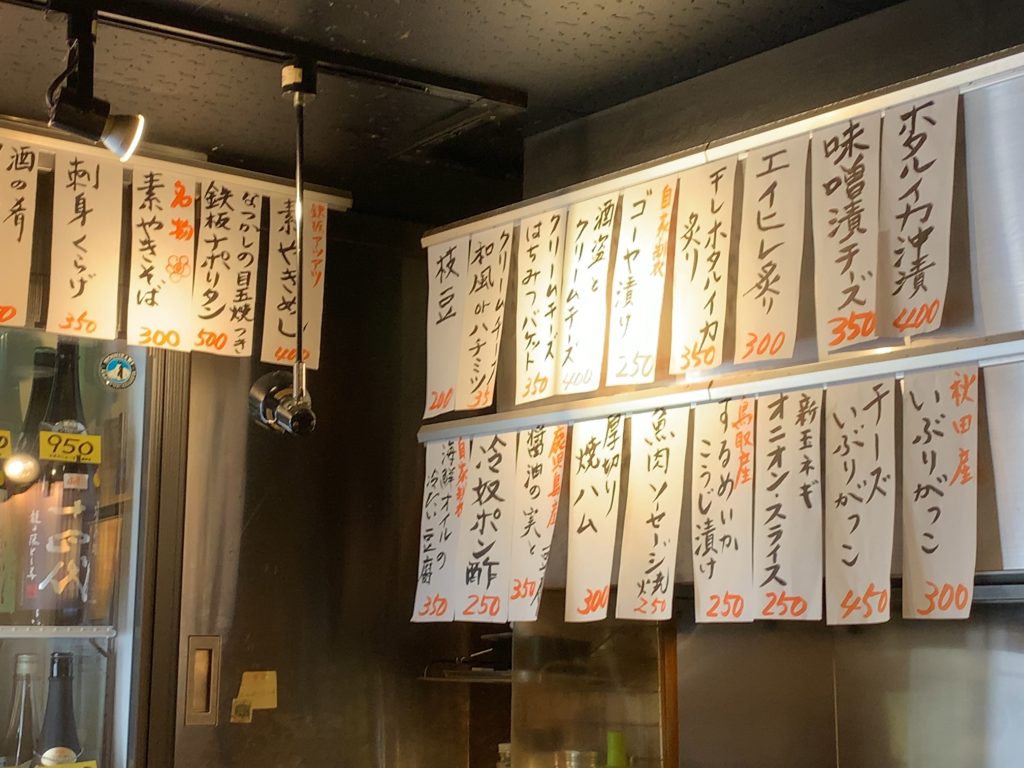 酒の肴
刺身くらげ
350
名物
素やきそば
300
なつかしの目玉焼つき
鉄板ナポリタン
500
鉄板アツアツ
素やきめし
400
ホタルイカ沖漬
400
味噌漬チーズ
350
エイヒレ炙り
300
干しホタルイカ
炙り
350
自家製
ゴーヤ漬け
250
酒盗と
クリームチーズ
400
クリームチーズ
はちみつバゲット
350
クリームチーズ
和風orハチミツ
35
枝豆
200
秋田産
いぶりがっこ
300
チーズ
いぶりがっこ
450
新玉ネギ
オニオン・スライス
250
鳥取産
するめいか
こうじ漬け
250
魚肉ソーセージ焼
250
厚切り
焼ハム
300
鹿児島産
醤油の実と
350
冷奴ポン酢
250
自家製
海鮮オイルの
冷たい豆腐
350
950